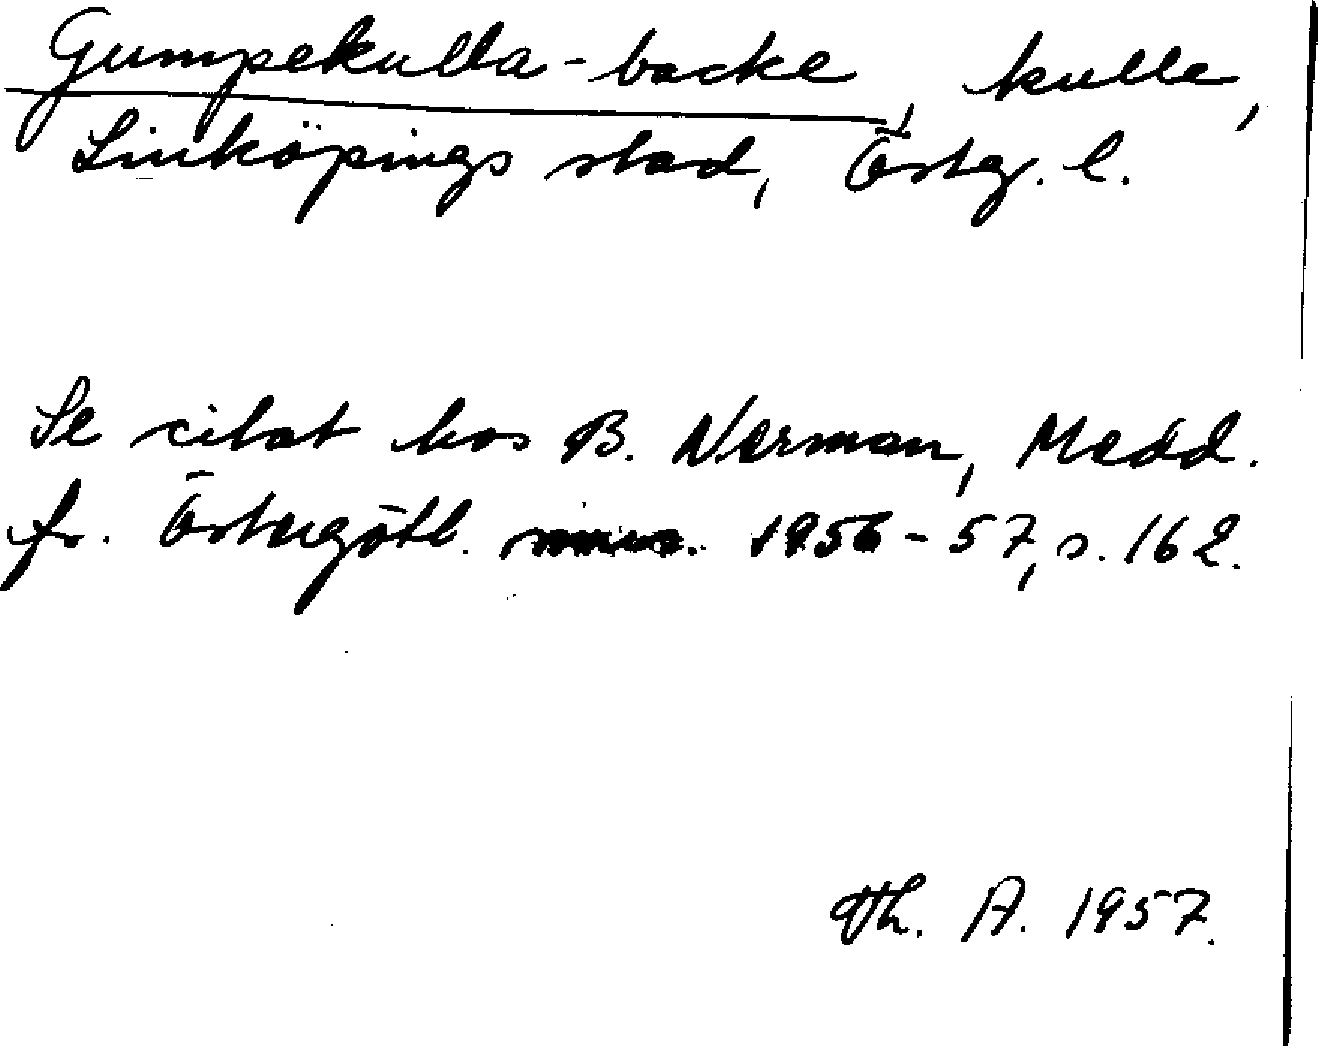 Gumpekulla-backe, kulle,
Linköpings stad, Östg. l.
Se citat hos B. Nerman, Medd.
fr. Östergötl. mus. 1956-57, s. 162.
Th. A. 1957.